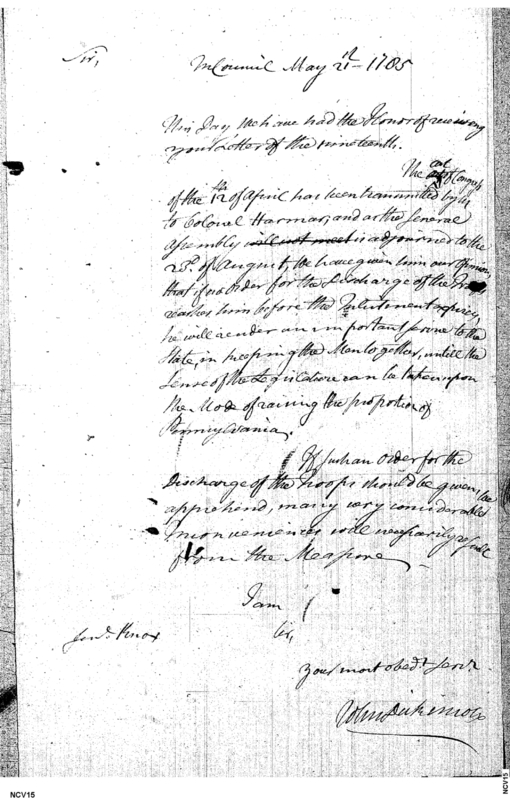 Sir,
In Council May 21st 1785
This Day, We have had the Honor of receiving
your Letter of the nineteenth.
The act of Congress
of the 12th of April has been transmitted by us
to Colonel Harmar; and as the General
Assembly will not meet is adjourned to the
23d. of August, We have given him our Opinion,
that if no Order for the Discharge of the Troops
reaches him before the Inlistment expires,
he will render an important service to the
State, in keeping the Men together, untill the
Sense of the Legislature can be taken upon
the Mode of raising the proportion of
Pennsylvania.
If such an Order for the
Discharge of the Troops should be given, We
apprehend, many very considerable
Inconveniences will necessarily result
from the Measure
I am
Sir,
Genl. Knox
your most obedt. servt.
John Dickinson
NCV15
NCV15